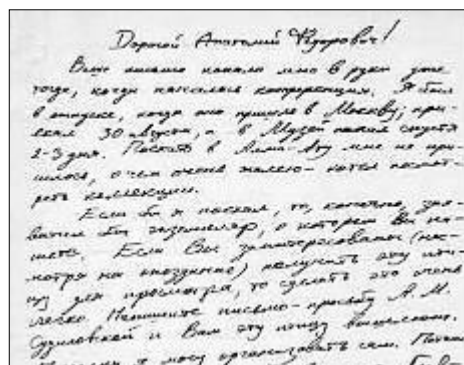 Дорогой Анатолий Федорович!
Ваше письмо попало мне в руки уже
тогда, когда началась конференция. Я был
в отпуске, когда оно пришло в Москву, при-
ехал 30 Августа, а в Музей попал спустя
2-3 дня. Поехать в Алма-Ату мне не при-
шлось, о чем очень жалею - хотел посмот-
реть коллекции.
Если бы я поехал, то, конечно, зах-
ватил бы экземпляр, о котором Вы пи-
шете. Если Вы заинтересованы (нес-
мотря на опоздание) получить эту пти-
цу для просмотра, то сделать это очень
легко. Напишите письмо-просьбу А. М.
Судиловской и Вам эту птицу вышлют.
я могу организовать сам.